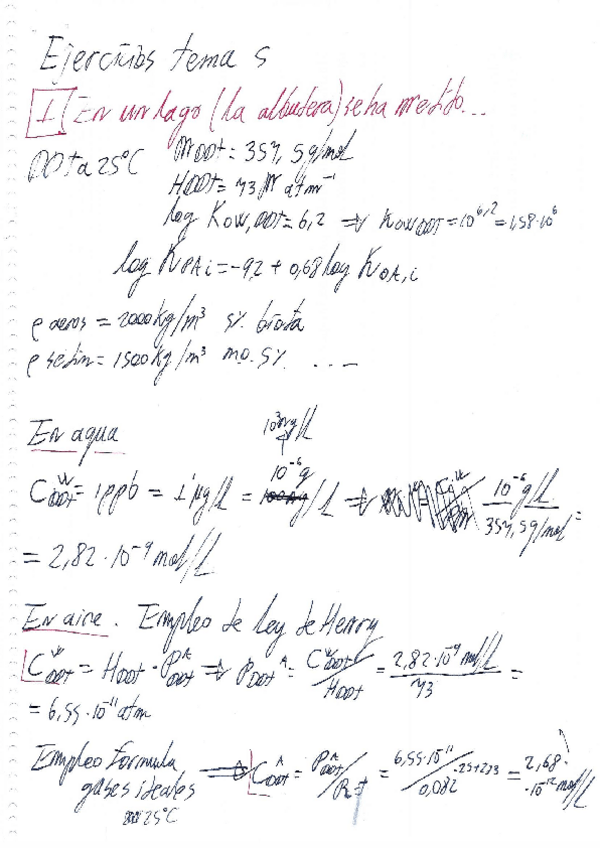 Ejercicios tema 5
1 En un lago (La albufera) se ha medido...
DDT a 25°C MDDT = 354,5 g/mol
HDDT = 43 M atm⁻¹
log KOW,DDT = 6,2 ⇒ KOWDDT = 10^6,2 = 1,58·10^6
log KPA i = -9,2 + 0,68 log KOA,i
ρ aeros = 2000 kg/m³ 5% biota
ρ sedim = 1500 kg/m³ mo. 5% ...
En agua
10⁻³ mg/L
C^W DDT = 1 ppb = 1 μg/L = 10⁻⁶ g/L ⇒ 10⁻⁶ g/L / 354,5 g/mol =
= 2,82·10⁻⁹ mol/L
En aire. Empleo de Ley de Henry
C^W DDT = HDDT · P^A DDT ⇒ PDDT^A = C^W DDT / HDDT = 2,82·10⁻⁹ mol/L / 43 =
= 6,55·10⁻¹¹ atm
Empleo formula gases ideales 25°C ⇒ C^A DDT = P^A DDT / R·T = 6,55·10⁻¹¹ / 0,082·25+273 = 2,68·10⁻¹² mol/L